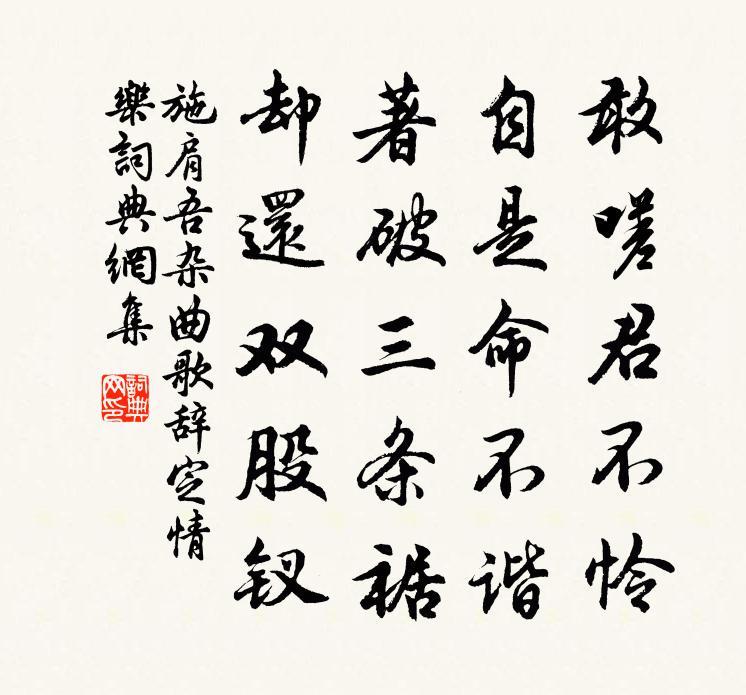 敢嗟君不怜
自是命不谐
著破三条裾
却還双股钗
施肩吾杂曲歌辞定情
樂詞典網集
詞典网印